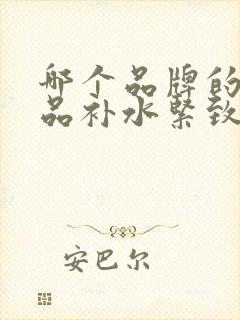 哪个品牌的
品补水紧致
安巴尔